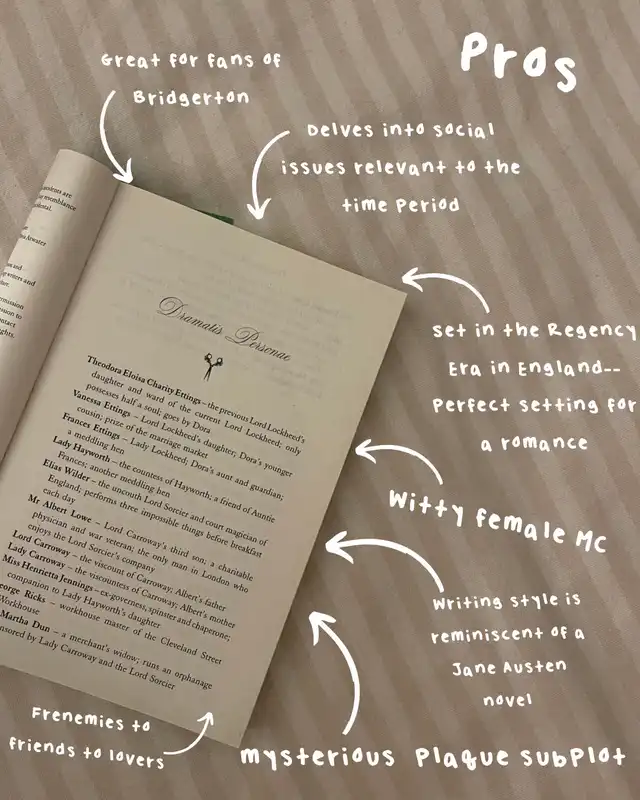 Pros
Great for fans of
Bridgerton
Delves into social
issues relevant to the
time period
set in the Regency
Era in England--
Perfect setting for
a romance
Witty female MC
Writing style is
reminiscent of a
Jane Austen
novel
mysterious plaque subplot
Frenemies to
friends to lovers
Dramatis Personae
Theodora Eloisa Charity Ettings – the previous Lord Lockheed's
daughter and ward of the current Lord Lockheed; only
possesses half a soul; goes by Dora
Vanessa Ettings – Lord Lockheed's daughter; Dora's younger
cousin; prize of the marriage market
Frances Ettings – Lady Lockheed; Dora's aunt and guardian;
a meddling hen
Lady Hayworth – the countess of Hayworth; a friend of Auntie
Frances; another meddling hen
Elias Wilder – the uncouth Lord Sorcier and court magician of
England; performs three impossible things before breakfast
each day
Mr Albert Lowe – Lord Carroway's third son; a charitable
physician and war veteran; the only man in London who
enjoys the Lord Sorcier's company
Lord Carroway – the viscount of Carroway, Albert's father
Lady Carroway – the viscountess of Carroway; Albert's mother
Miss Henrietta Jennings – ex-governess, spinster and chaperone;
companion to Lady Hayworth's daughter
eorge Ricks – workhouse master of the Cleveland Street
Workhouse
Martha Dun – a merchant's widow; runs an orphanage
nsored by Lady Carroway and the Lord Sorcier